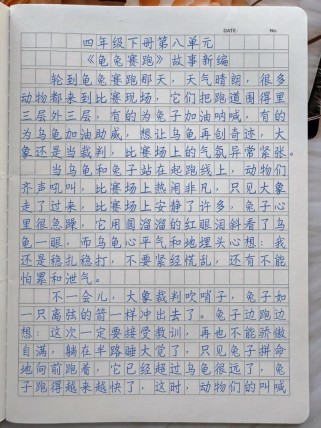 DATE: No.
四年级下册第八单元
《龟兔赛跑》故事新编
轮到龟兔赛跑那天，天气晴朗，很多
动物都来到比赛现场，它们把跑道围得里
三层外三层，有的为兔子加油呐喊，有的
为乌龟加油助威，想让乌龟再创奇迹，大
象还是当裁判，比赛场上的气氛异常紧张。
当乌龟和兔子站在起跑线上，动物们
齐声吼叫，比赛场上热闹非凡，只见大象
走了过来，比赛场上安静了许多，兔子心
里很急躁，它用圆溜溜的红眼泪斜看了乌
龟一眼，而乌龟心平气和地埋头心想：我
还是稳扎稳打，不要紧经慌乱，还有不能
怕累和泄气。
不一会儿，大象裁判吹哨子，兔子如
一只离弦的箭一样冲出去了。兔子边跑边
想：这次一定要接受教训，再也不能骄傲
自满，躺在半路睡大觉了，只见兔子拼命
地向前跑着，它已经超过乌龟很远了，兔
子跑得越来越快了，这时，动物们的叫喊